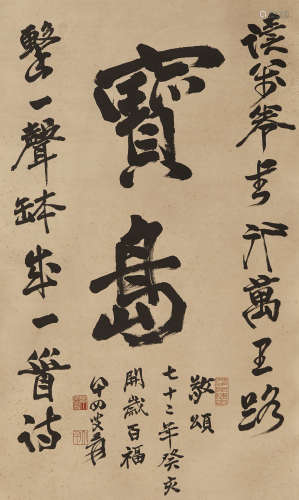 讀万卷書行萬里路
寶島
敬頌
七十二年癸亥
開歲百福
叟爰
擊一聲缽成一首詩